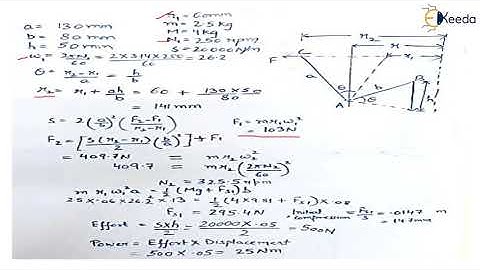 Ekeeda
a = 130mm
b = 80mm
h = 50mm
r₁ = 60mm
m = 2.5kg
M = 4kg
N₁ = 250 rpm
S = 20000N/m
ω₁ = 2πN₁/60 = 2×3.14×250/60 = 26.2
θ = r₂-r₁/a = h/b
r₂ = r₁ + ah/b = 60 + 130×50/80
= 141mm
S = 2(a/b)²(F₂-F₁/r₂-r₁)
F₁ = mr₁ω₁²
= 103N
F₂ = [S(r₂-r₁)/2 (b/a)²] + F₁
= 409.7N = mr₂ω₂²
409.7 = mr₂(2πN₂/60)²
N₂ = 325.5rpm
m r₁ ω₁² a = ½(Mg + Fs₁)b
25×.06×26.2×13 = ½(4×9.81+Fs₁)×.08
Fs₁ = 295.4N
Initial compression = Fs₁/S = .0147 m
= 14.7mm
Effort = S×h/2 = 20000×.05/2 = 500N
Power = Effort × Displacement
= 500 × .05 = 25Nm
r₂
r
F
C
a
θ
A
b
θ
B
h